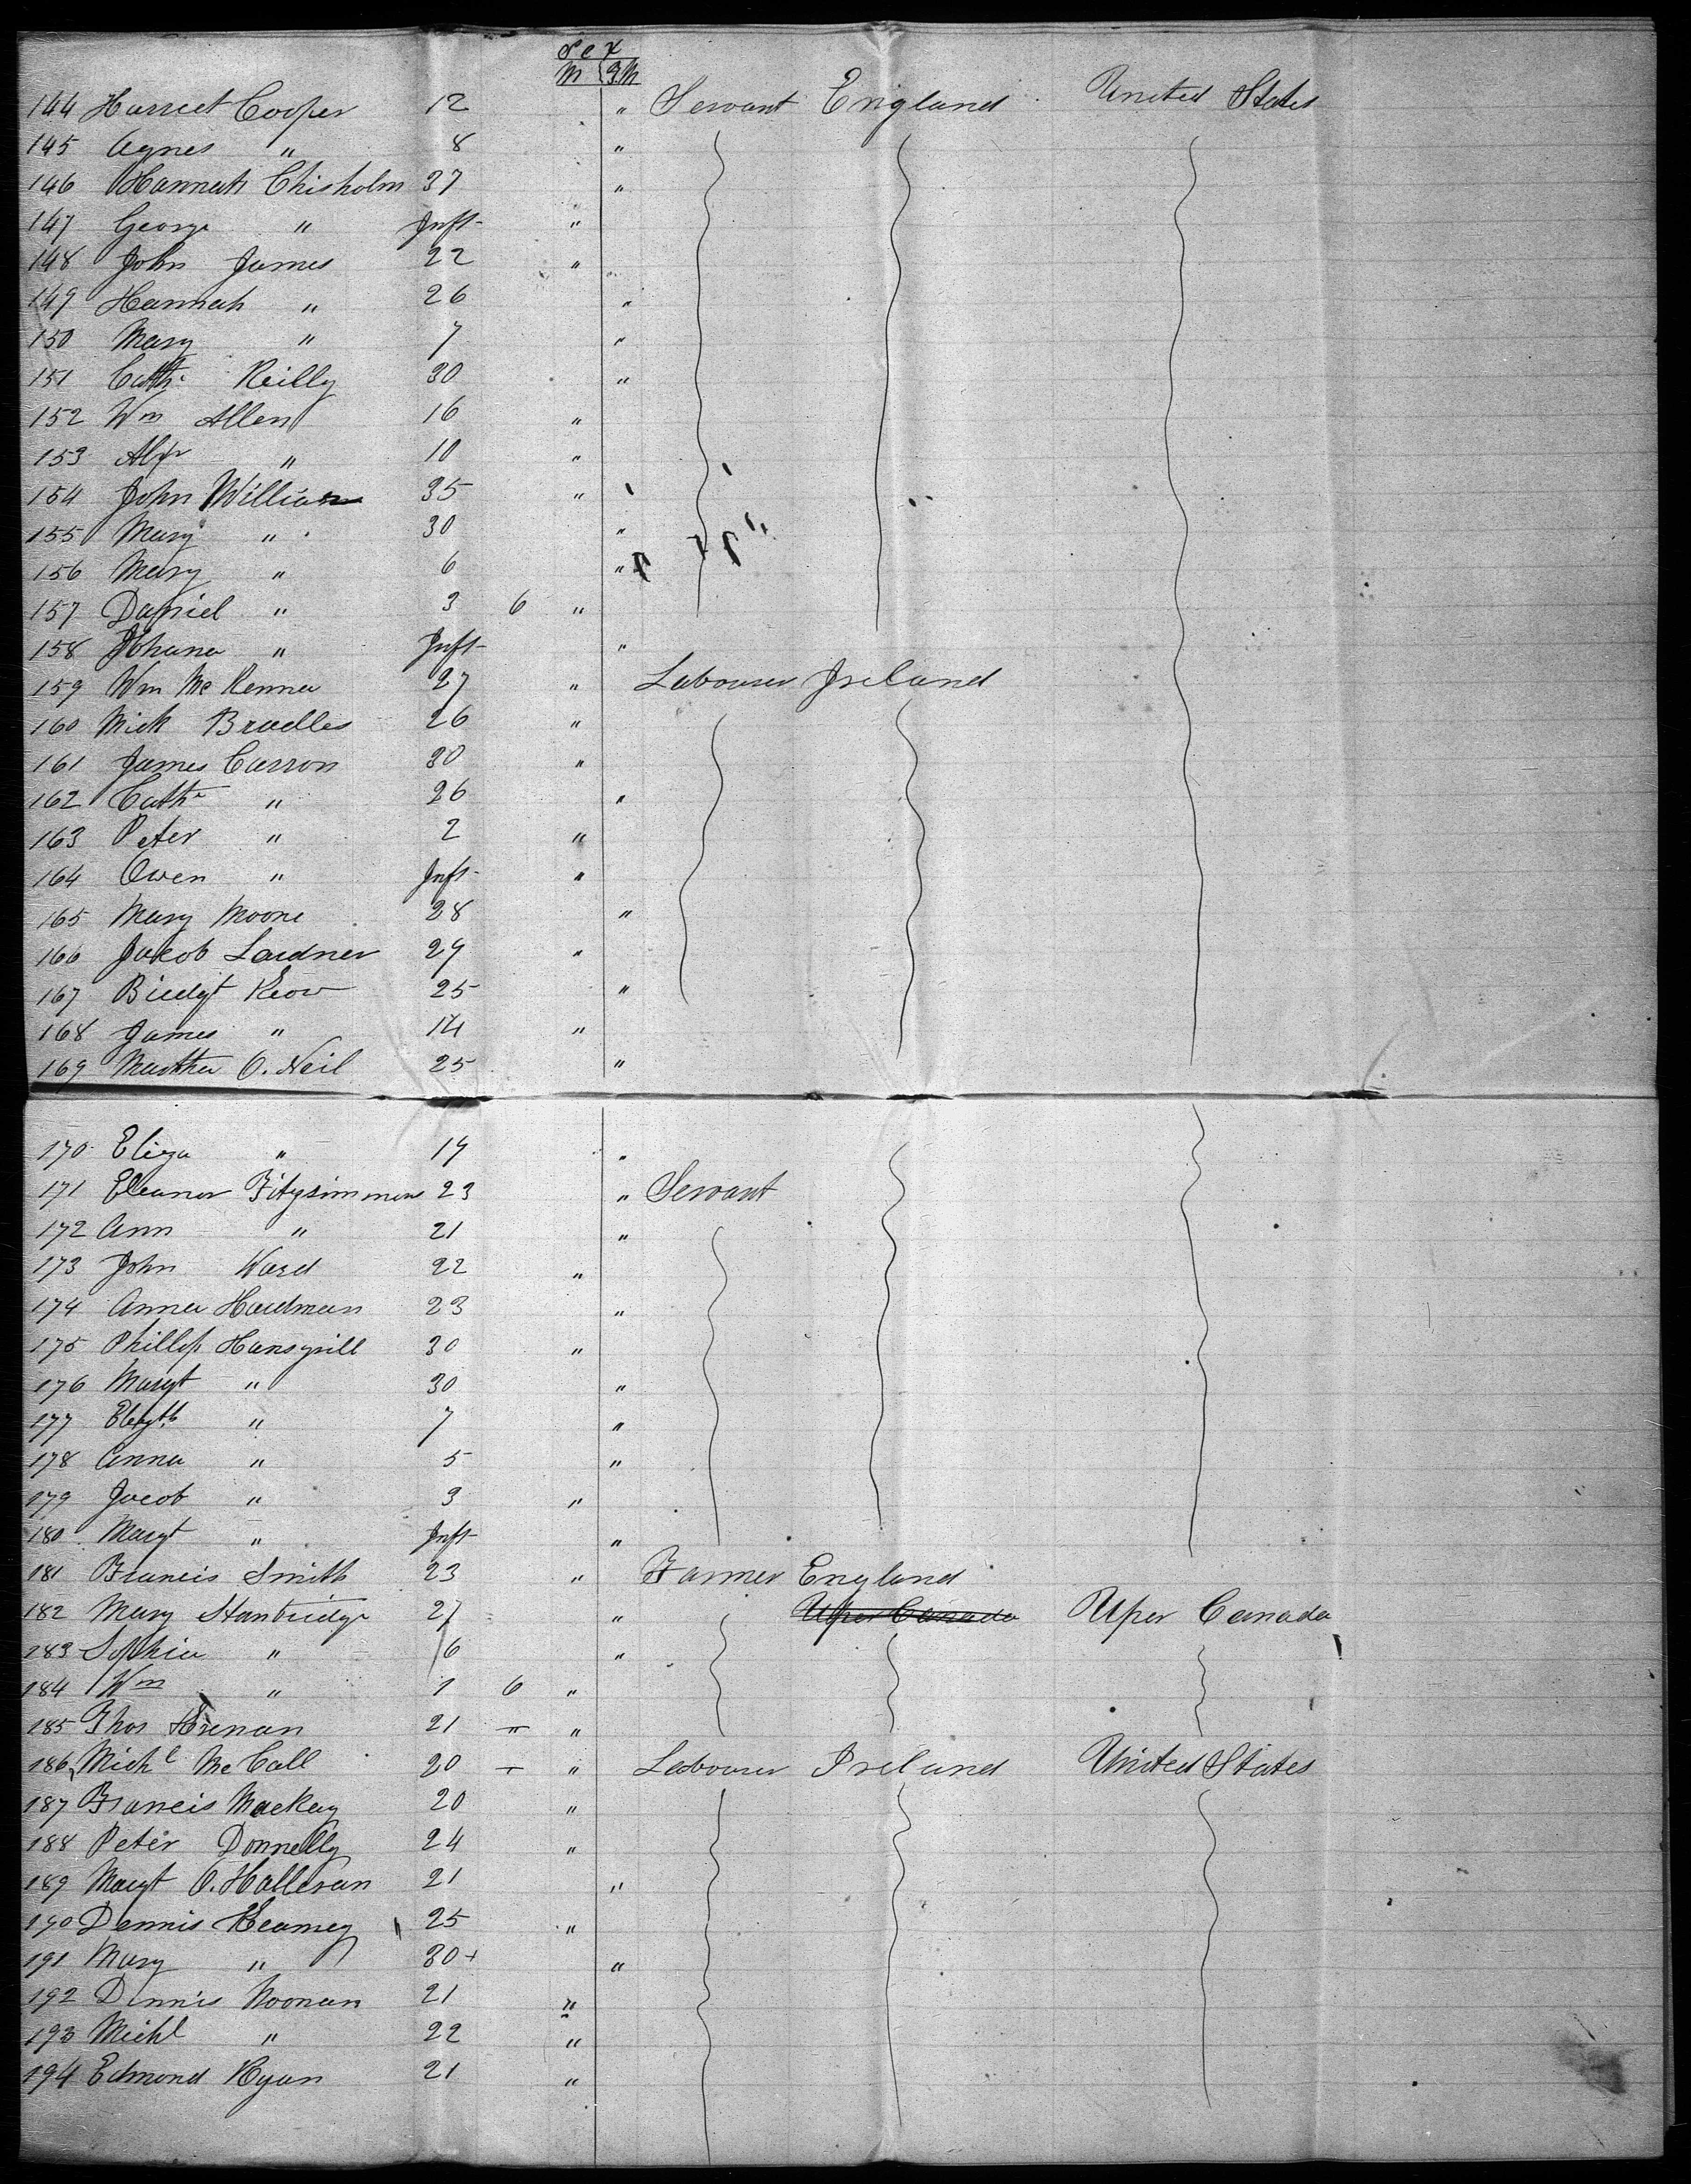 Sex
M F.M
144 Harriet Cooper 12 " Servant England United States
145 Agnes " 8 "
146 Hannah Chisholm 37 "
147 George " Inft "
148 John James 22 "
149 Hannah " 26 "
150 Mary " 7 "
151 Cathe Reilly 30 "
152 Wm Allen 16 "
153 Alexr " 10 "
154 John William 35 "
155 Mary " 30 "
156 Mary " 6 "
157 Daniel " 3 6 "
158 Johana " Inft "
159 Wm McKenna 27 " Labourer Ireland
160 Mick Bradles 26 "
161 James Carron 30 "
162 Cathe " 26 "
163 Peter " 2 "
164 Owen " Inft "
165 Mary Moore 28 "
166 Jakob Lardner 29 "
167 Bridgt Keow 25 "
168 James " 14 "
169 Martha O.Neil 25 "
170 Eliza " 19 "
171 Eleanor Fitzsimmons 23 " Servant
172 Ann " 21 "
173 John Ward 22 "
174 Anna Hardman 23 "
175 Phillip 30 "
176 Margt " 30 "
177 Elizth " 7 "
178 Anna " 5 "
179 Jacob " 3 "
180 Margt " Inft "
181 Francis Smith 23 " Farmer England
182 Mary Stanbridge 27 " Uper Canada Uper Canada
183 Sophia " 6 "
184 Wm " 1 6 "
185 Thos 21 " "
186 Michl McCall 20 " Labourer Ireland United States
187 Francis Mackay 20 "
188 Peter Donnelly 24 "
189 Margt O.Halleran 21 "
190 Dennis Kearney 25 "
191 Mary " 30 "
192 Dennis Noonan 21 "
193 Michl " 22 "
194 Edmond Ryan 21 "